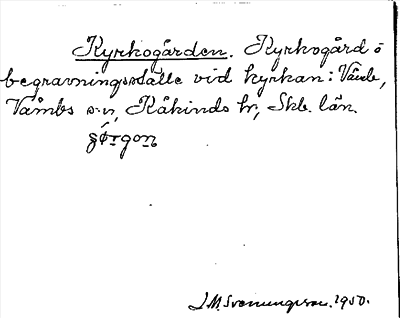 Kyrkogården. Kyrkogård o
begravningsställe vid kyrkan: Våmb,
Våmbs s:n, Kåkinds hr, Skb. län.
J.M. Svenungsson. 1950.